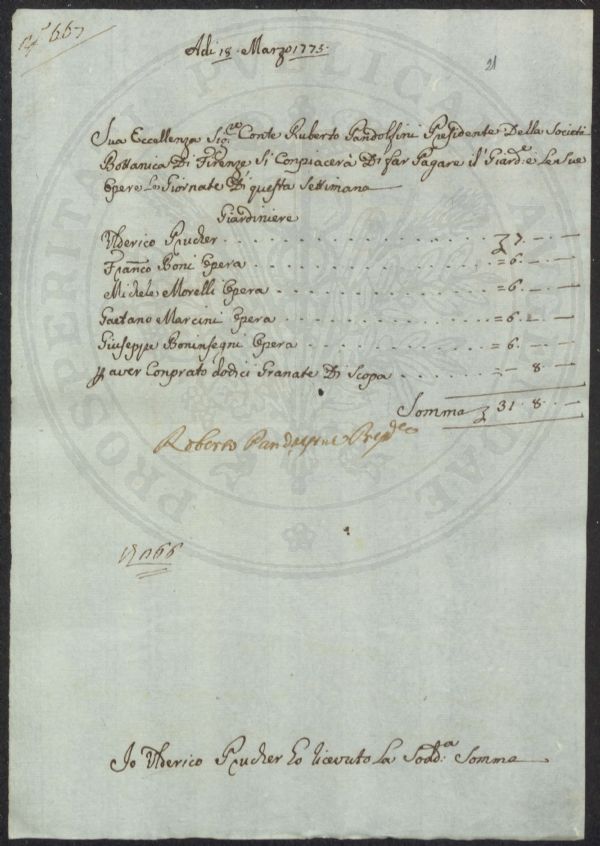 667
Adi 18. Marzo 1775.
21
Sua Eccellenza Sig.re Conte Ruberto Pandolfini Presidente Della Società
Bottanica Di Firenze Si Conpiacerà Di far Pagare il Giard:e e Le Sue
Opere Le Giornate Di questa Settimana
Giardiniere
Ulderico Prucher . . . . . . . . . . . . 7. — . —
Franco Boni Opera . . . . . . . . . . . = 6. — . —
Michele Morelli Opera . . . . . . . . . . = 6. — . —
Gaetano Marcini Opera . . . . . . . . . = 6. — . —
Giuseppe Boninsegni Opera . . . . . . . . = 6. — . —
P aver Conprato dodici Granate Di Scopa . . . . . = — 8. —
Somma 31. 8. —
Roberto Pandolfini Presid.e
166
Io Ulderico Prucher ho ricevuto La Sodd:a Somma
PROSPERITATI PUBLICAE AUGENDAE